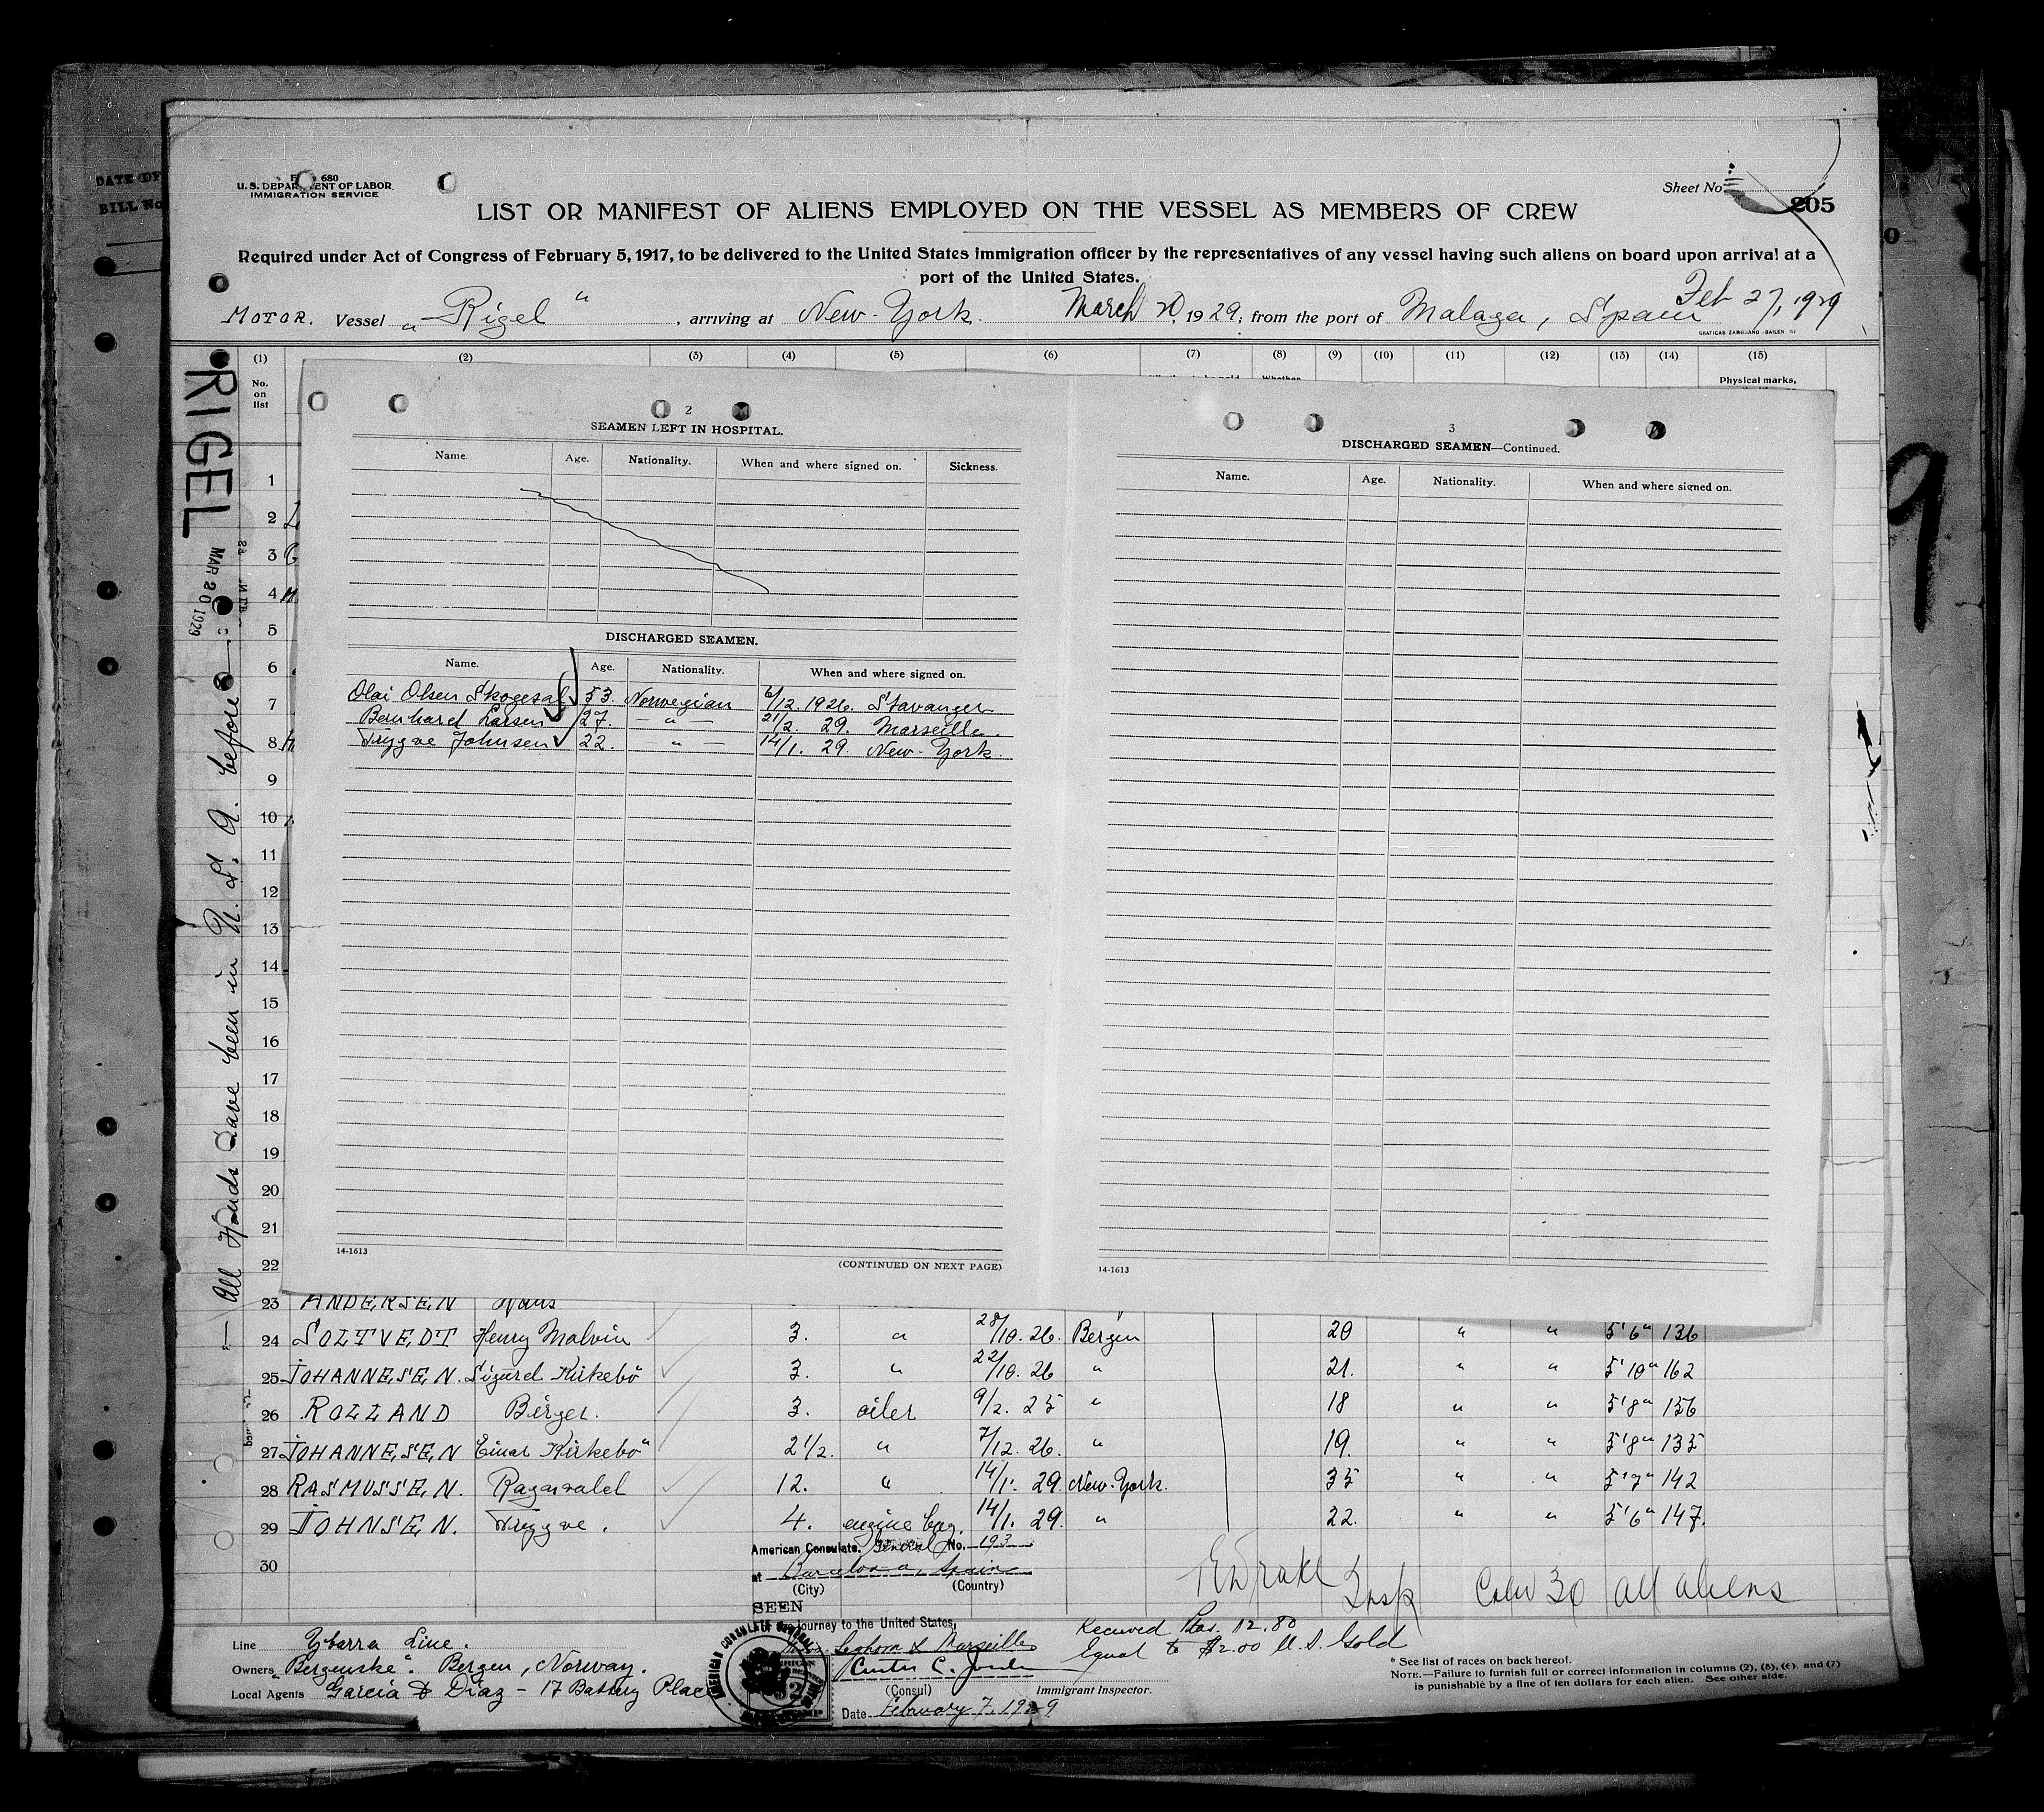 DATE OF
BILL No
680
U.S. DEPARTMENT OF LABOR
IMMIGRATION SERVICE
Sheet No
205
LIST OR MANIFEST OF ALIENS EMPLOYED ON THE VESSEL AS MEMBERS OF CREW
Required under Act of Congress of February 5, 1917, to be delivered to the United States immigration officer by the representatives of any vessel having such aliens on board upon arrival at a
port of the United States.
MOTOR. Vessel „Rigel“, arriving at New-York. March 20, 1929, from the port of Malaga, Spain Feb 27, 1929
(1) (2) (3) (4) (5) (6) (7) (8) (9) (10) (11) (12) (13) (14) (15)
No. on list
Whether
Physical marks,
RIGEL
MAR 20 1929
— All Hands have been in U. S. A. before
9
2
SEAMEN LEFT IN HOSPITAL.
Name. Age. Nationality. When and where signed on. Sickness.
DISCHARGED SEAMEN.
Name. Age. Nationality. When and where signed on.
Olai Olsen Skogesal 53. Norwegian 6/12. 1926. Stavanger
Bernhard Larsen 27. — " — 21/2. 29. Marseille.
Trygve Johnsen 22. — " — 14/1. 29. New-York.
14-1613
(CONTINUED ON NEXT PAGE)
3
DISCHARGED SEAMEN—Continued.
Name. Age. Nationality. When and where signed on.
14-1613
1
2
3
4
5
6
7
8
9
10
11
12
13
14
15
16
17
18
19
20
21
22
23 ANDERSEN Hans
24 SOLTVEDT Henry Malvin 3. " 28/10. 26. Bergen 20 " " 5'6" 136
25 JOHANNESEN. Sigurd Kirkebö 3. " 22/10. 26 " 21. " " 5'10" 162
26 ROLLAND Birger. 3. oiler 9/2. 25 " 18 " " 5'8" 156
27 JOHANNESEN Einar Kirkebö 2 1/2. " 7/12. 26. " 19. " " 5'8" 135
28 RASMUSSEN. Ragnvald 12. " 14/1. 29. New-York. 35 " " 5'7" 142
29 JOHNSEN. Trygve. 4. engine boy. 14/1. 29. " 22. " " 5'6" 147.
30
American Consulate General No. 193
at Barcelona, Spain
(City) (Country)
SEEN
journey to the United States,
Leghorn & Marseilles
Curtis C. Jordan
(Consul)
Date February 7, 1929
AMERICAN CONSULATE GENERAL
Insp
Crew 30 all aliens
Received Ptas. 12.80
Equal to $2.00 U.S. Gold
Immigrant Inspector.
Line Ybarra Line.
Owners „Bergenske“. Bergen, Norway.
Local Agents Garcia & Diaz - 17 Battery Place
* See list of races on back hereof.
NOTE.—Failure to furnish full or correct information in columns (2), (5), (6), and (7)
is punishable by a fine of ten dollars for each alien. See other side.